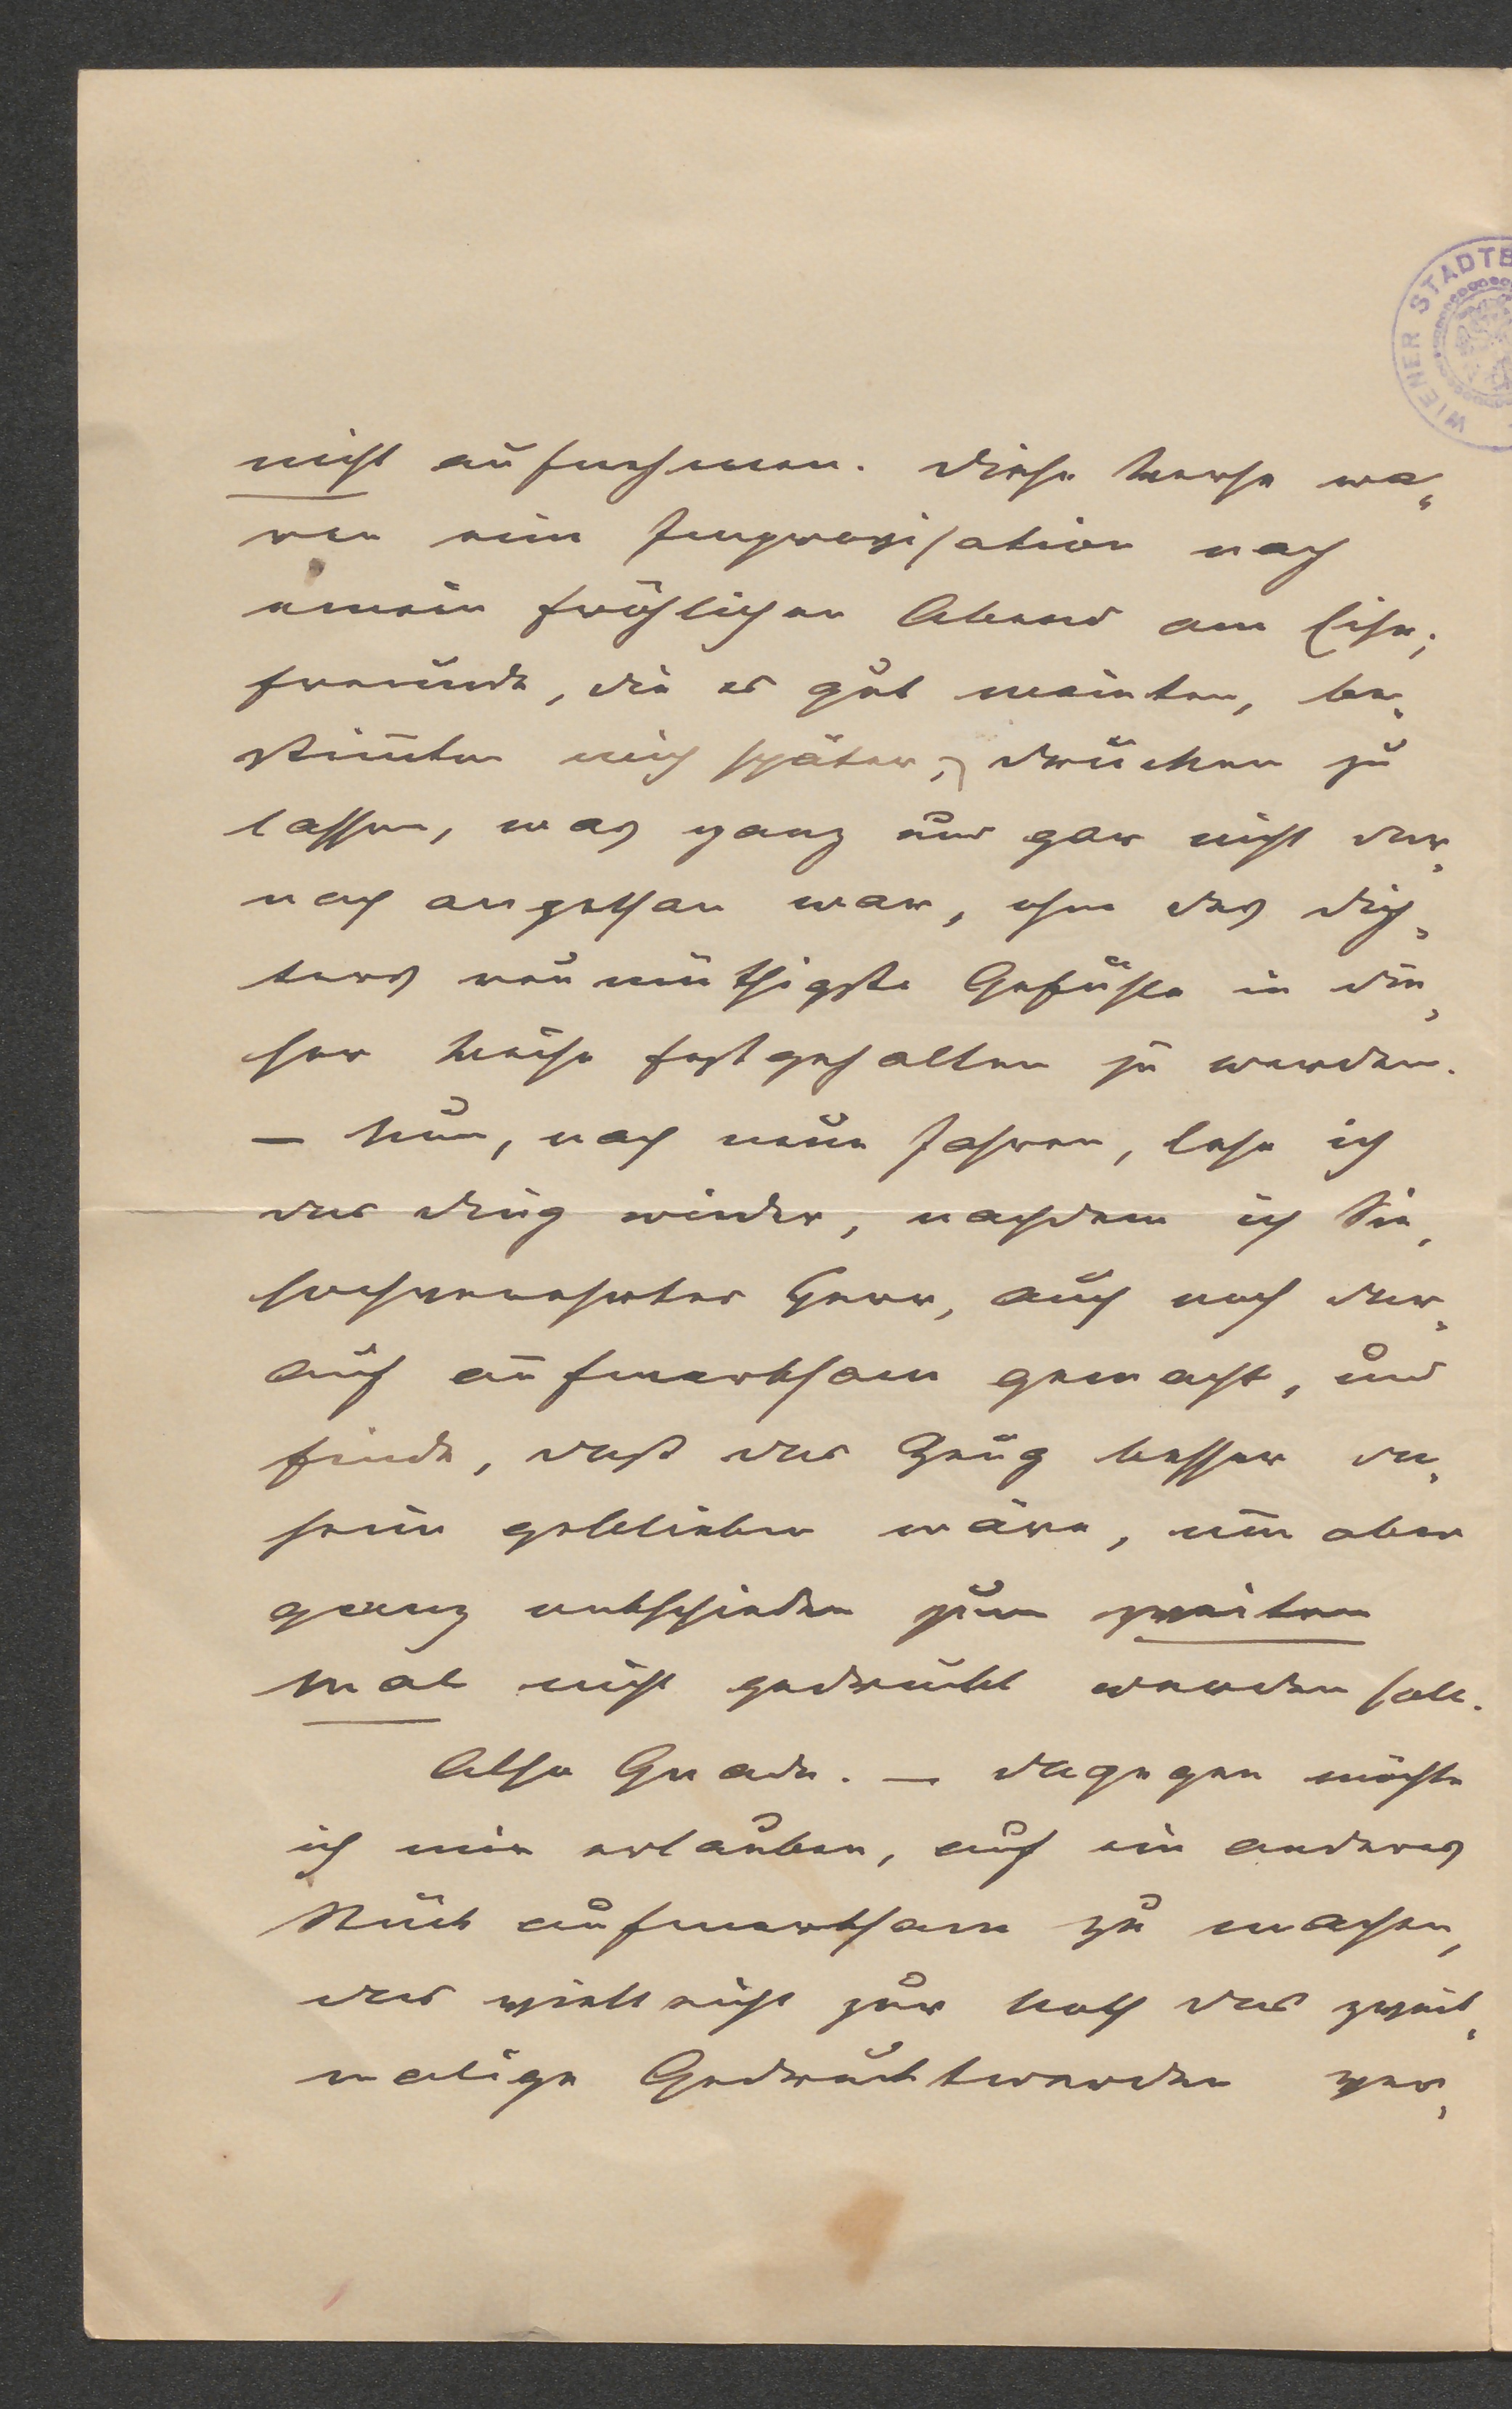 WIENER STADTB
nicht aufnehmen. Diese Verse wa-
ren eine Improvisation nach
einem fröhlichen Abend am Eise;
Freunde, die es gut meinten, be-
stim̄ten mich später, drucken zu
lassen, was ganz und gar nicht dar-
nach angethan war, ohne des Dich-
ters wemüthigste Gefühle in die-
ser Weise festgehalten zu werden.
– Nun, nach neun Jahren, lese ich
das Ding wieder, nachdem ich Sie,
hochverehrter Herr, auch noch dar-
auf aufmerksam gemacht, und
finde, daß das Zeug besser da-
heim geblieben wäre, nun aber
ganz entschieden zum zweiten
Mal nicht gedruckt werden soll.
Also Gnade. – Dagegen möchte
ich mir erlauben, auf ein anderes
Stück aufmerksam zu machen,
das vielleicht zur Noth das zwei-
malige Gedrucktwerden ver-